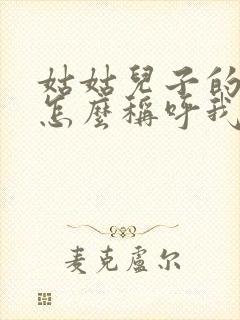 姑姑兒子的
怎麼稱呼我
麦克盧尔